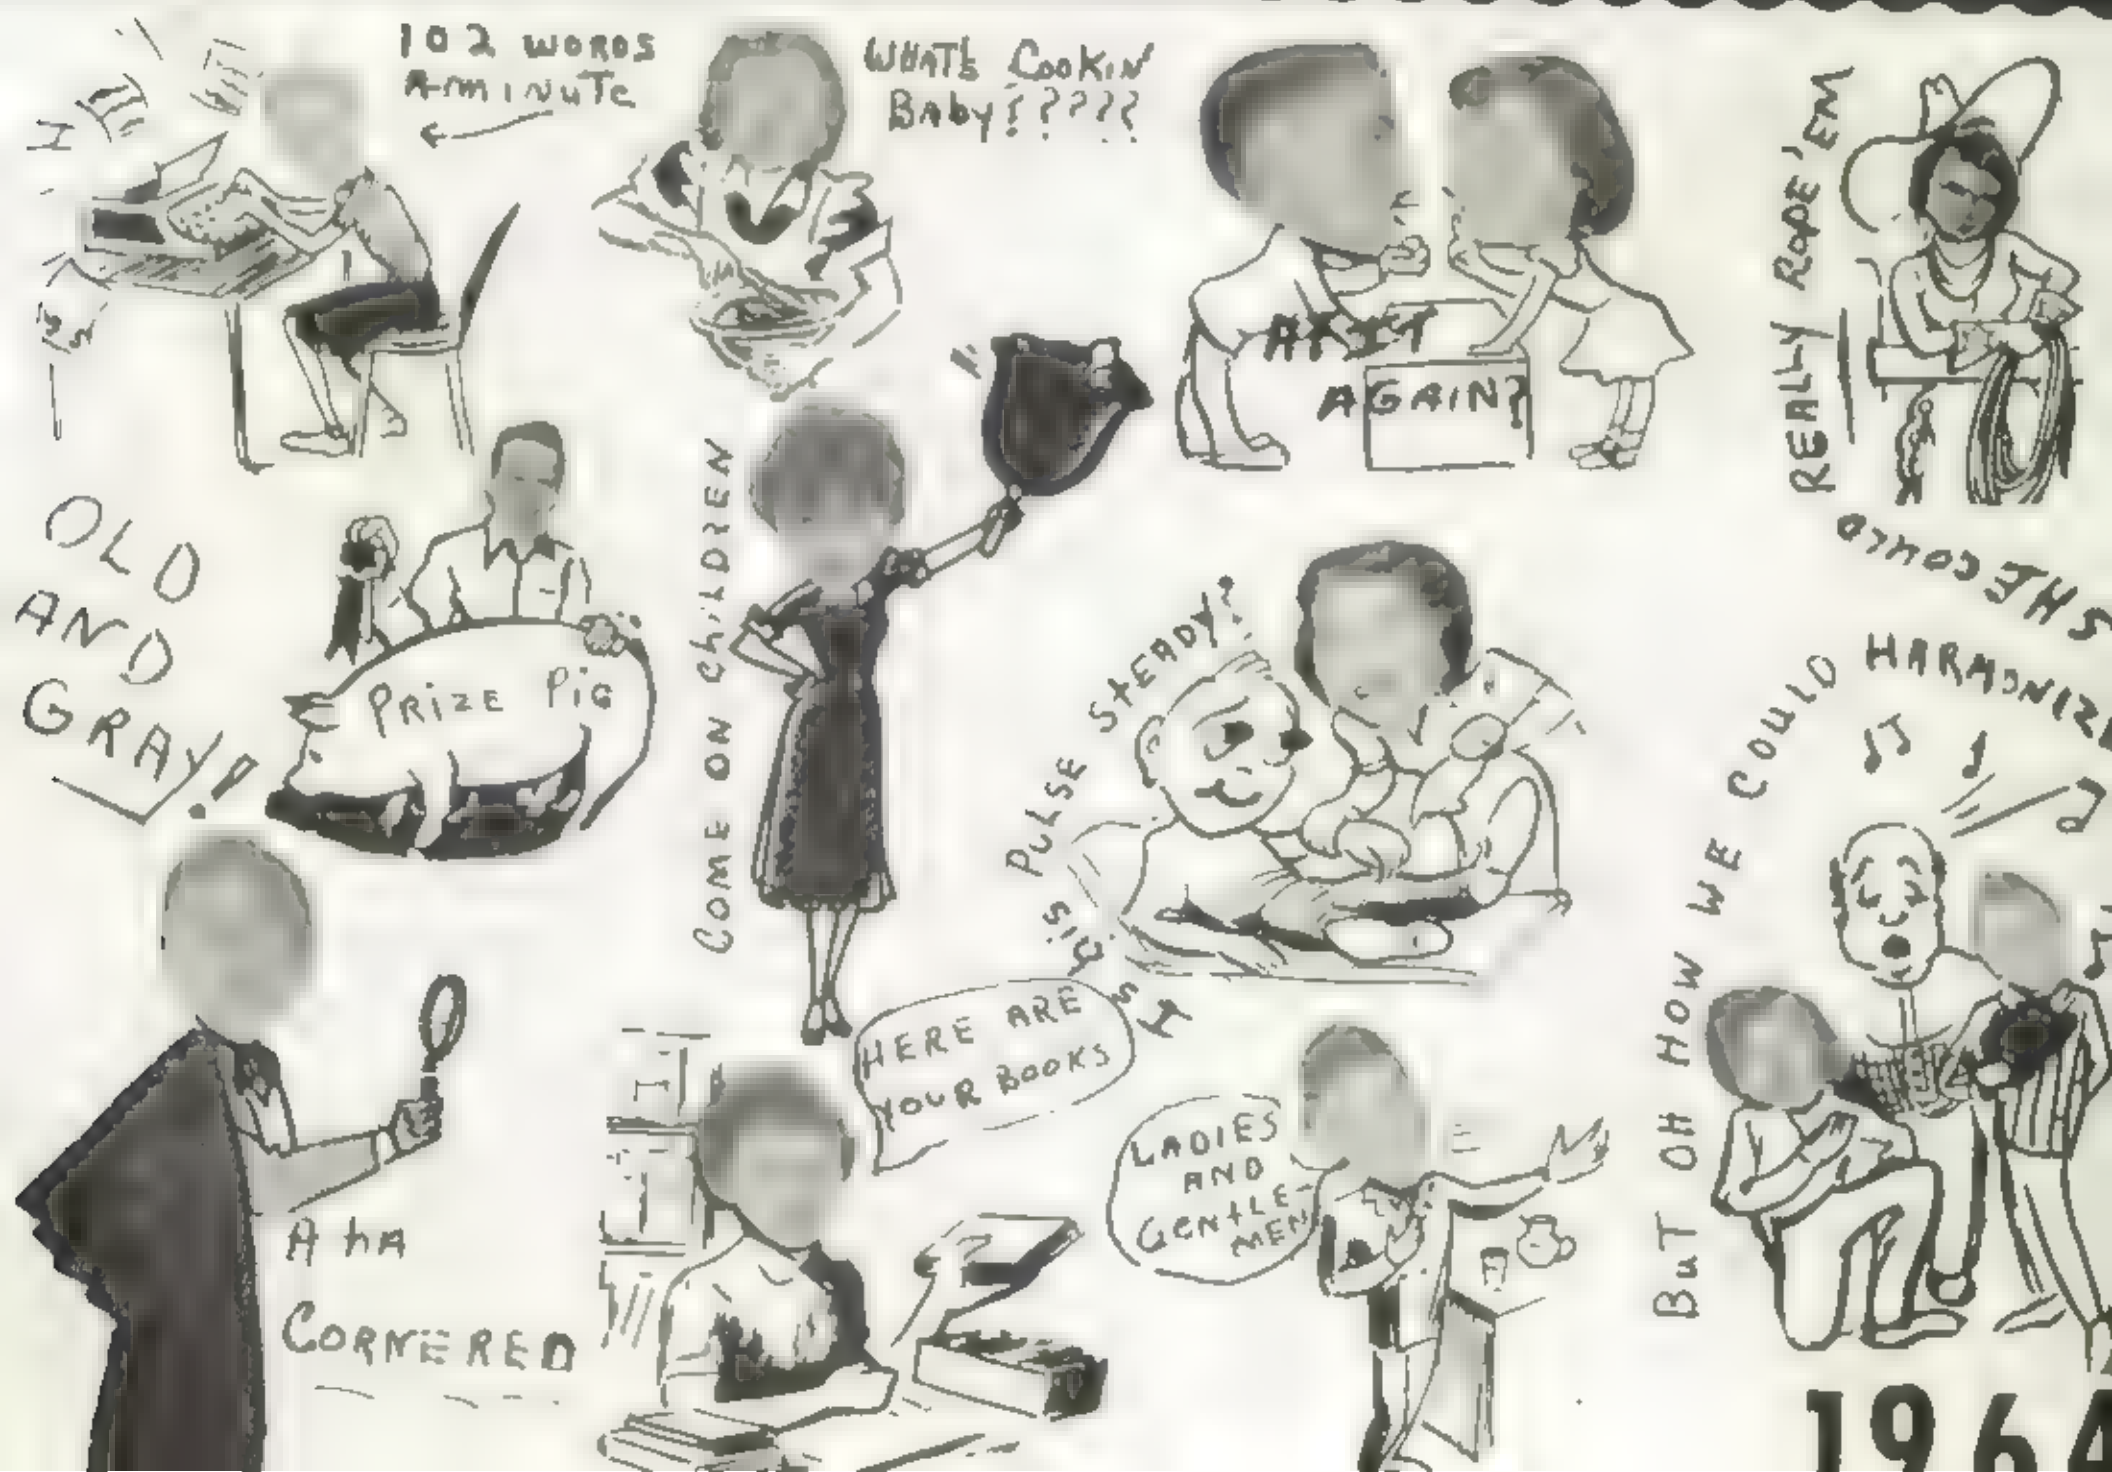 102 WORDS
A-MINUTE
WHAT'S COOKIN
BAby!????
AT IT
AGAIN?
SHE COULD
REALLY ROPE 'EM
OLD
AND
GRAY!
PRIZE PIG
COME ON ChiLDREN
IS DIS PULSE STEADY?
BUT OH HOW WE COULD HARMONIZE
HERE ARE
YOUR BOOKS
LADIES
AND
GENTLE-
MEN
A hA
CORNERED
1964